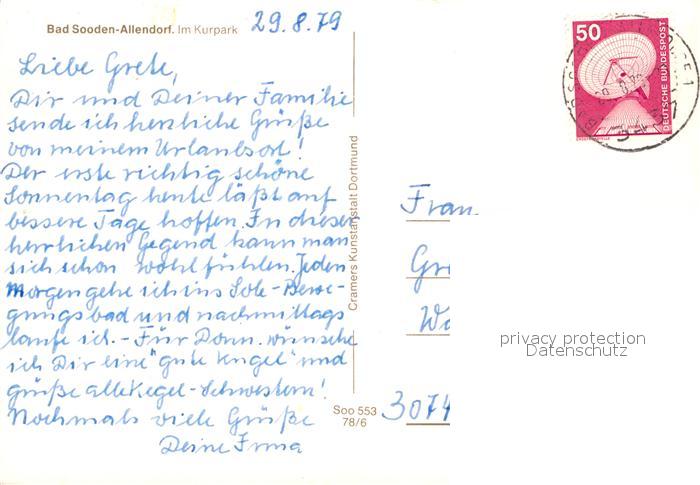 Bad Sooden-Allendorf. Im Kurpark
29.8.79
Liebe Grete,
Dir und Deiner Familie
sende ich herzliche Grüße
von meinem Urlaubsort!
Der erste richtig schöne
Sonnentag heute läßt auf
bessere Tage hoffen. In dieser
herrlichen Gegend kann man
sich schon wohl fühlen. Jeden
Morgen gehe ich ins Sole-Bewe-
gungsbad und nachmittags
laufe ich. - Für Donn. wünsche
ich Dir eine "gute Kugel" und
grüße alle Kegel-Schwestern!
Nochmals viele Grüße
Deine Irma
Cramers Kunstanstalt Dortmund
Soo 553
78/6
50
DEUTSCHE BUNDESPOST
Frau
Gr
W
3074
privacy protection
Datenschutz